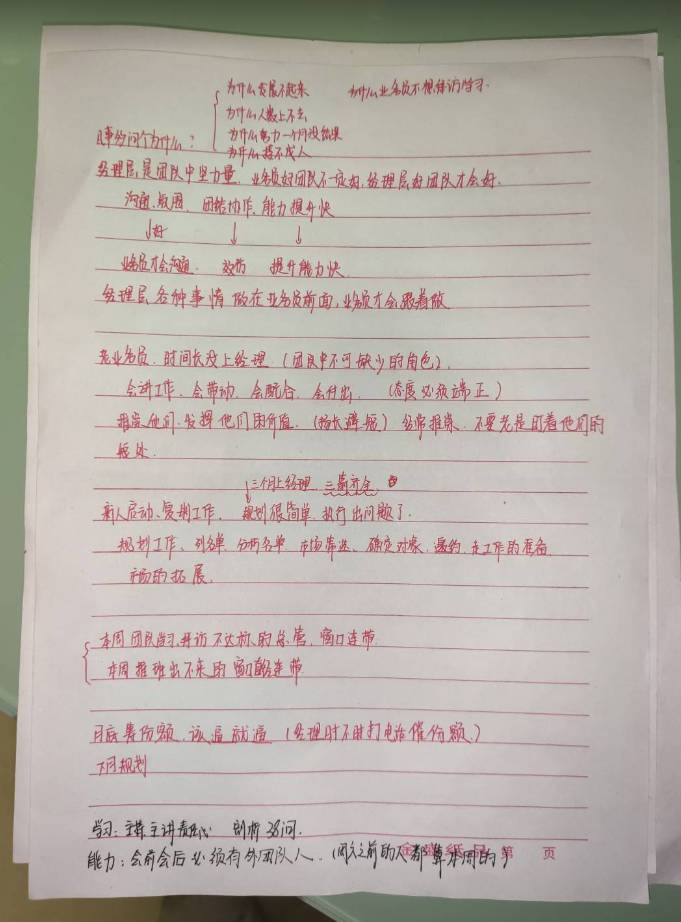 为什么发展不起来 为什么业务员不想拜访学习.
为什么人数上不去
为什么努力一个月没结果
凡事多问个为什么:
为什么提不成人
经理层,是团队中坚力量, 业务员好团队不一定好,经理层好团队才会好.
沟通,氛围、团结协作、能力提升快
好
业务员才会沟通. 效仿 提升能力快.
经理层,各种事情做在业务员前面,业务员才会跟着做
老业务员.时间长没上经理.(团队中不可缺少的角色).
会讲工作、会带动、会配合、会付出. (态度必须端正)
推崇他们.发挥他们的价值.(扬长避短) 经常推崇. 不要老是盯着他们的
短处.
三个月上经理 三薪齐全
新人启动、复制工作、 规划很简单.执行出问题了.
规划工作、列名单、分析名单、市场筛选、确定对象、邀约.去工作的准备.
市场的拓展.
本周团队学习,拜访不达标的总管,窗口连带
本周推班出不来的窗口连带
月底舞份额.该逼就逼(经理时不时打电话催份额)
下月规划
学习:主持主讲责任心 剖析38问.
能力:会前会后必须有外团队人. 之前的人都算本周的)
第 页